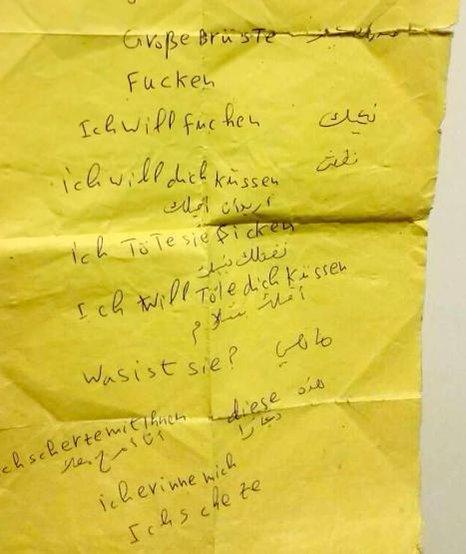 Große Brüste
Fucken
Ich will fucken نيك
ich will dich küssen
اريد ان اقبلك
ich Töte sie ficken
نقتلك نيك
Ich will Töte dich küssen
Was ist sie? ماهي
ich scherze mit Ihnen diese هذه
انا امزح معك
ich erinne mich
Ich scheze